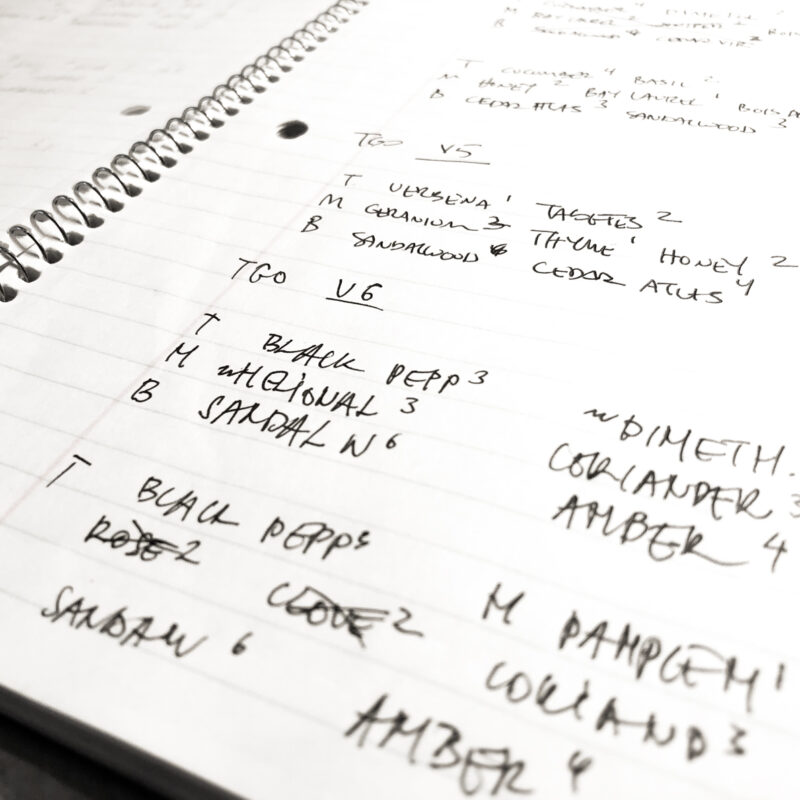 T CUCUMBER 4 BASIL 2
M HONEY 2 BAY LAUREL 1 BOIS
B CEDAR ATLAS 3 SANDALWOOD 3
TGO V5
T VERBENA 1 TAGETES 2
M GERANIUM 3 THYME 1 HONEY 2
B SANDALWOOD CEDAR ATLAS 4
TGO V6
T BLACK PEPP 3 DIMETH.
M HELIONAL 3 CORIANDER 3
B SANDALW 6 AMBER 4
T BLACK PEPP 3 M PAMPLEM 1
ROSE 2 CLOVE 2 CORIAND 3
SANDALW 6 AMBER 4